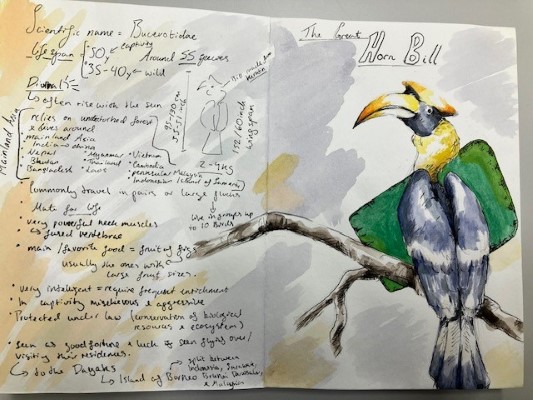 The Great Horn Bill
Scientific name = Bucerotidae
life span { 50y captivity
35-40y wild
Around 55 species
Diurnal
↳ often rise with the sun
relies on undisturbed forest
& lives around
Mainland Asia
mainland Asia
India
Nepal • Myanmar • Vietnam
Bhutan • Thailand • Cambodia
Bangladesh • Laos • peninsular Malaysia
• Indonesian island of Sumatra
95-120 cm
152/160 inch
wingspan
2-4kg
• Commonly travel in pairs or large flocks
Mate for life
live in groups up
to 10 Birds
• very powerful neck muscles
↳ fused vertebrae
• main / favorite food = fruit of figs
usually the ones with
large fruit sizes.
• very inteligent = require frequent enrichment
• In captivity mischevous & aggressive
• Protected under law (conservation of biological
resources & ecosystem)
• seen as good fortune & luck if seen flying over/
visiting their residences.
↳ to the Dayaks
↳ Island of Borneo
→ split between
Indonesia,
Brunei
& Malaysia